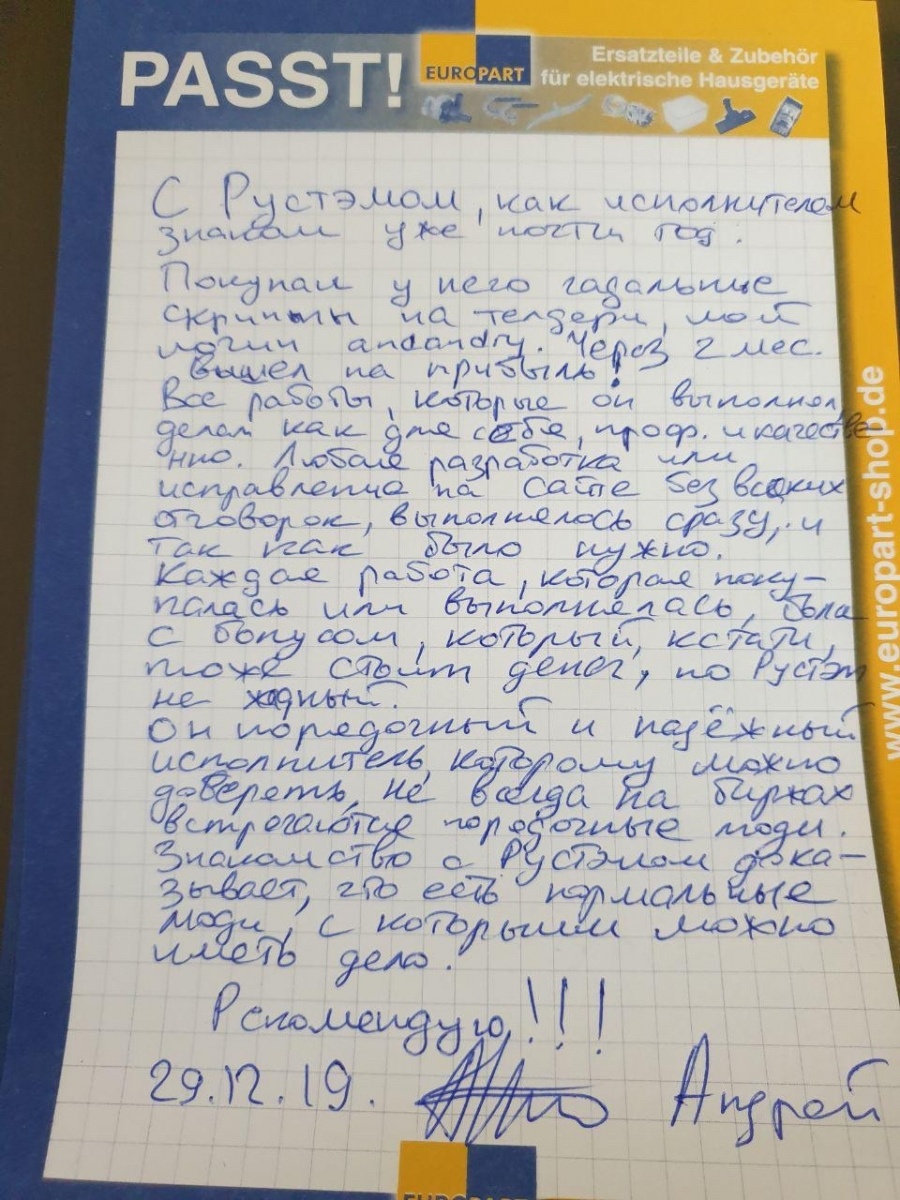 PASST!
EUROPART
Ersatzteile & Zubehör
für elektrische Hausgeräte
С Рустэмом, как исполнителем
знаком уже почти год.
Покупал у него гадальные
скрипты на тендери, мой
логин andandry. Через 2 мес.
вышел на прибыль!
Все работы, которые он выполнял,
делал как для себя, проф. и качестве
нно. Любая разработка или
исправление на сайте без всяких
отговорок, выполнялось сразу, и
так как было нужно.
Каждая работа, которая поку-
палась или выполнялась, была
с бонусом, который, кстати,
тоже стоит денег, но Рустэм
не жадный.
Он порядочный и надёжный
исполнитель, которому можно
доверять, не всегда на биржах
встречаются порядочные люди.
Знакомство с Рустэмом дока-
зывает, что есть нормальные
люди, с которыми можно
иметь дело.
Рекомендую!!!
29.12.19. Андрей
www.europart-shop.de
EUROPART